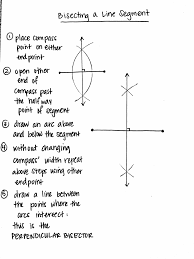 Bisecting a Line Segment
① place compass
point on either
endpoint
② open other
end of
compass past
the half way
point of segment
③ draw an arc above
and below the segment
④ without changing
compass' width repeat
above steps using other
endpoint
⑤ draw a line between
the points where the
arcs intersect:
this is the
PERPENDICULAR BISECTOR